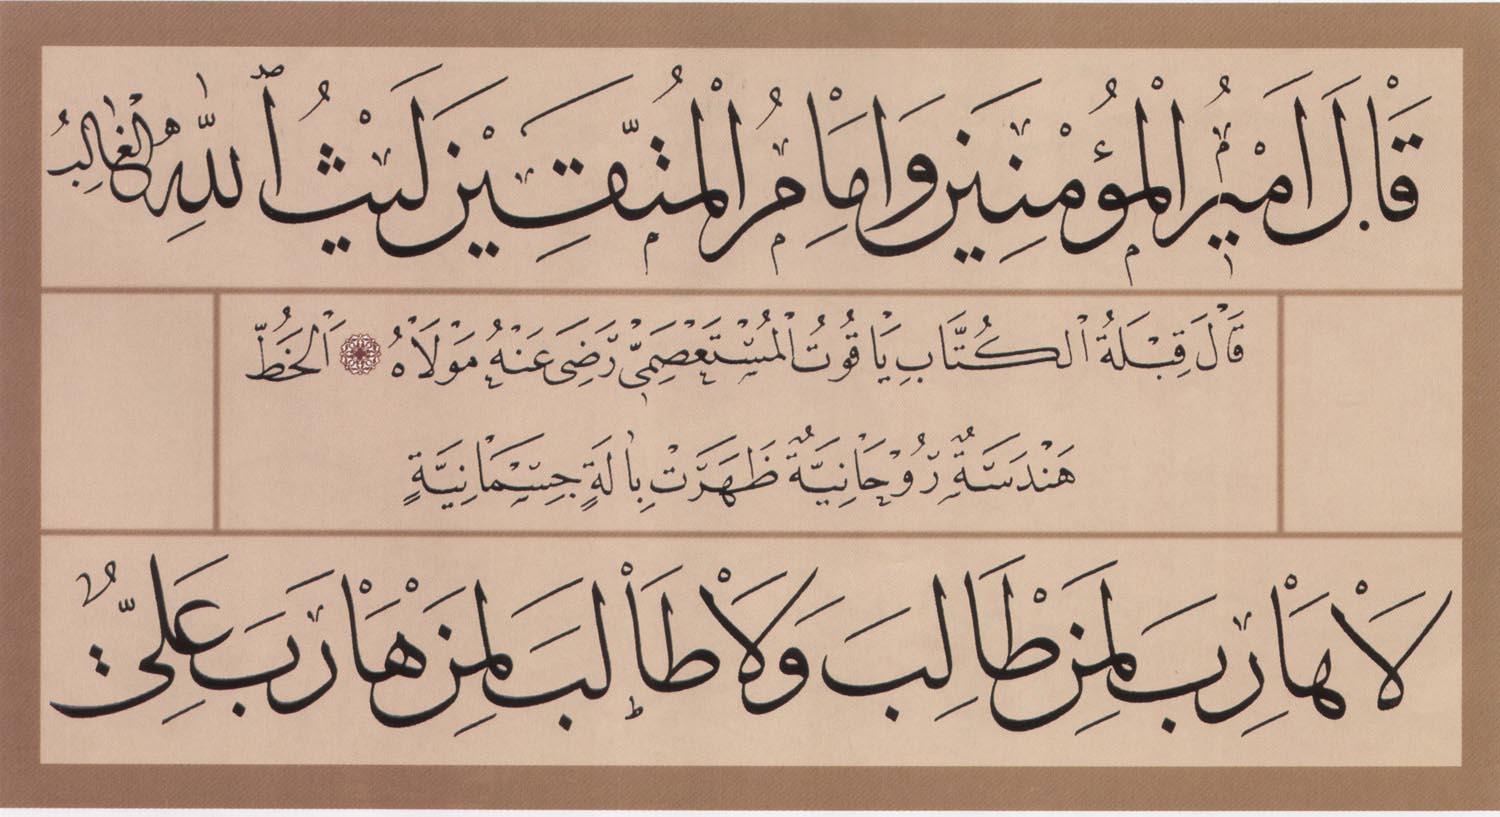 قَالَ اَمِيْرُ الْمُؤْمِنِيْنَ وَاِمَامُ الْمُتَّقِيْنَ لَيْثُ اللّٰهِ الْغَالِبُ
قَالَ قِبْلَةُ الْكُتَّابِ يَاقُوتُ الْمُسْتَعْصِمِيّ رَضِيَ عَنْهُ مَوْلَاهُ اَلْخَطُّ
هَنْدَسَةٌ رُوْحَانِيَّةٌ ظَهَرَتْ بِاٰلَةٍ جِسْمَانِيَّةٍ
لَا هَارِبَ لِمَنْ طَالِبَ وَلَا طَالِبَ لِمَنْ هَارَبَ عَلِيٌّ